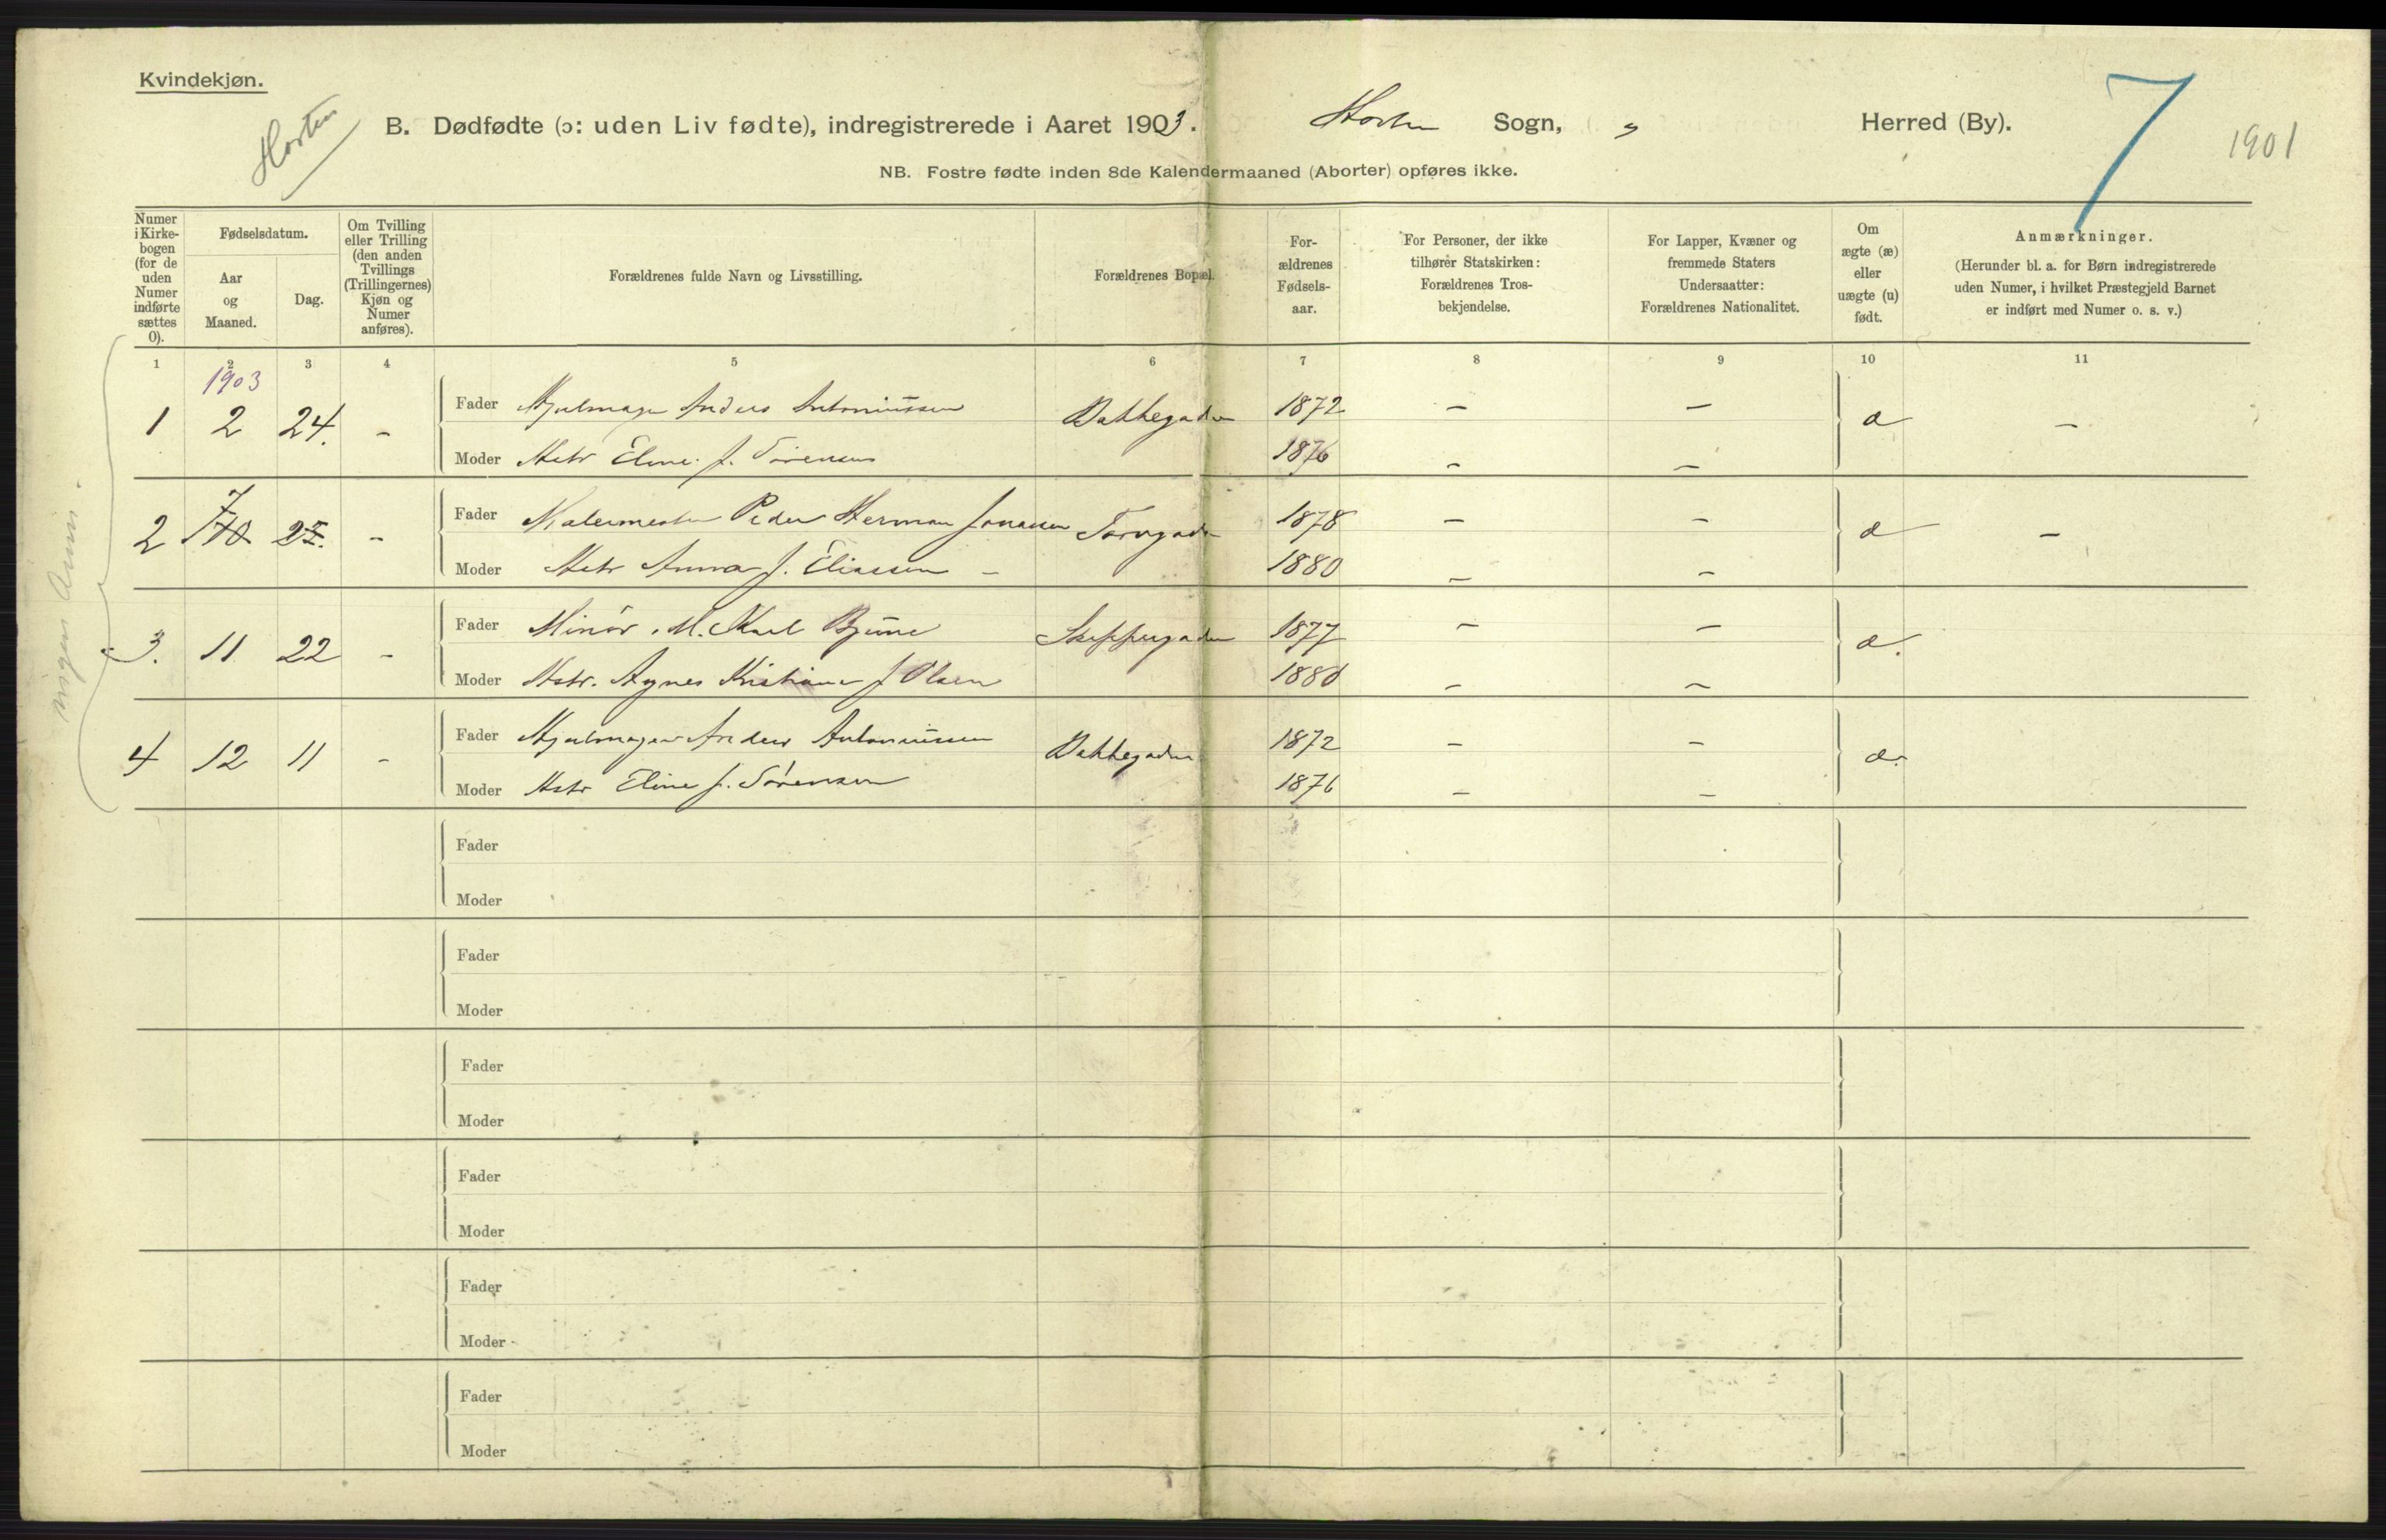 Kvindekjøn.
Horten
B. Dødfødte (ɔ: uden Liv fødte), indregistrerede i Aaret 1903. Horten Sogn, " Herred (By).
7
1901
NB. Fostre fødte inden 8de Kalendermaaned (Aborter) opføres ikke.
Numer i Kirkebogen (for de uden Numer indførte sættes 0).
Fødselsdatum.
Aar og Maaned.
Dag.
Om Tvilling eller Trilling (den anden Tvillings (Trillingernes) Kjøn og Numer anføres).
Forældrenes fulde Navn og Livsstilling.
Forældrenes Bopæl.
Forældrenes Fødselsaar.
For Personer, der ikke tilhører Statskirken: Forældrenes Trosbekjendelse.
For Lapper, Kvæner og fremmede Staters Undersaatter: Forældrenes Nationalitet.
Om ægte (æ) eller uægte (u) født.
Anmærkninger.
(Herunder bl. a. for Børn indregistrerede uden Numer, i hvilket Præstegjeld Barnet er indført med Numer o. s. v.)
1 2 3 4 5 6 7 8 9 10 11
1903
1 2 24. - Fader Hjulmager Anders Antoniussen Bakkegaden 1872 - - æ -
Moder Hstr Eline f. Sørensen 1876 - -
2 7 - Fader Malermester Peder Herman Jonassen Torvgaden 1878 - - æ -
Moder Hstr Anna f. Eliassen - 1880 - -
3. 11 22 - Fader Minør. M. Karl Bjune Skippergaden 1877 - - æ.
Moder Hstr. Agnes Kristiane f Olsen 1880 - -
4 12 11 - Fader Hjulmager Anders Antoniussen Bakkegaden 1872 - - æ.
Moder Hstr Eline f. Sørensen 1876 - -
Fader
Moder
Fader
Moder
Fader
Moder
Fader
Moder
Fader
Moder
Fader
Moder